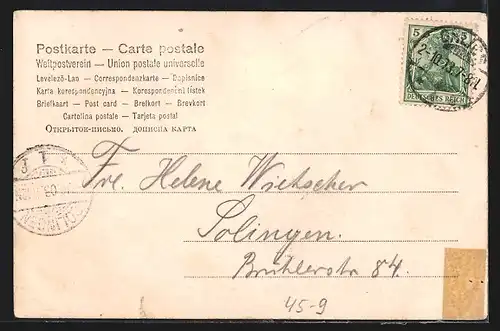 Postkarte — Carte postale
Weltpostverein — Union postale universelle
Levelező-Lap — Correspondenzkarte — Dopisnice
Karta korespondencyjna — Korespondenční lístek
Briefkaart — Post card — Brefkort — Brevkort
Cartolina postale — Tarjeta postal
Открытое-письмо. дописна карта
5
DEUTSCHES REICH
Frl. Helene Wietscher
Solingen.
Brühlerstr. 84.
45-9